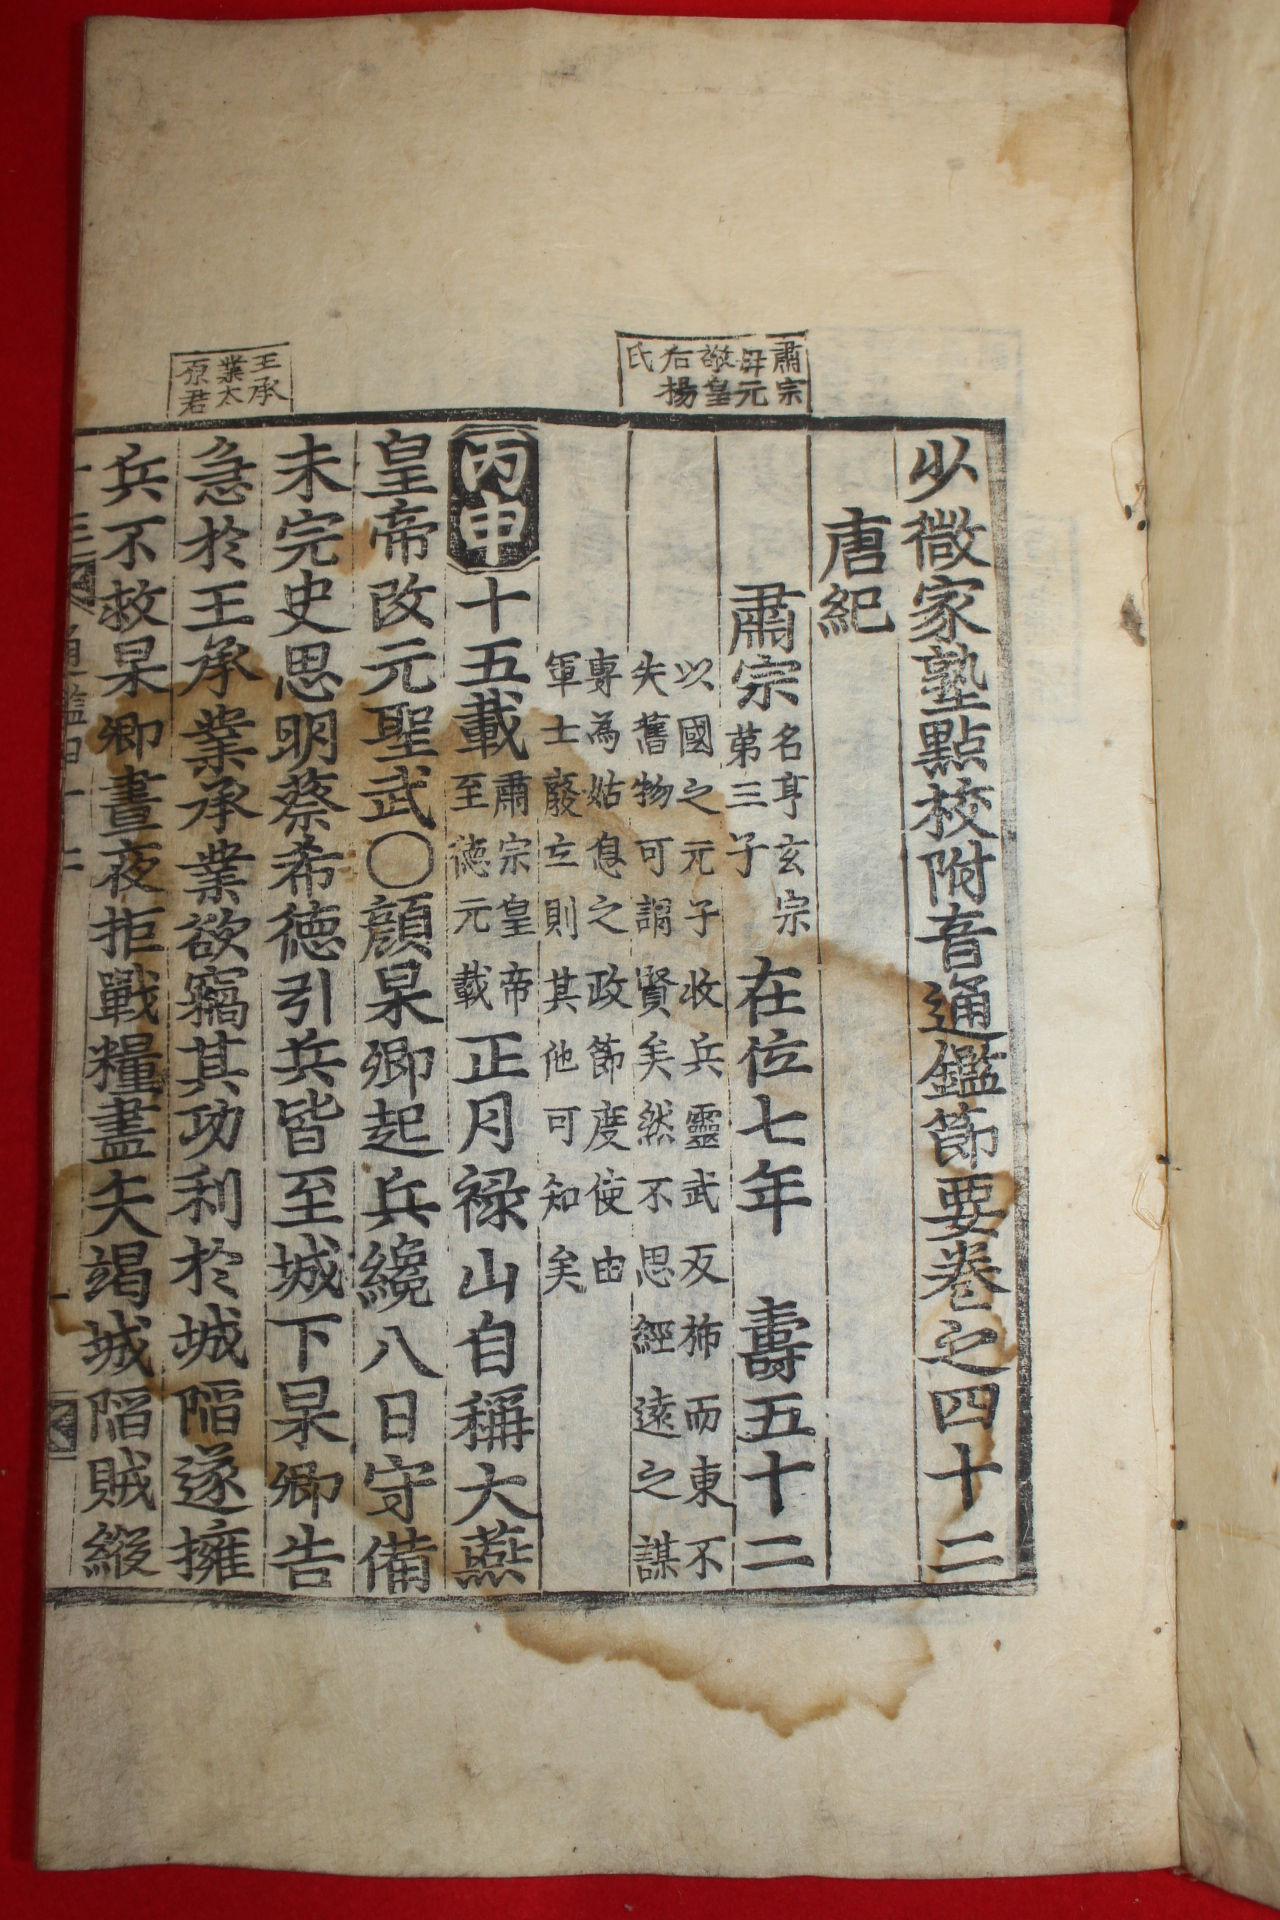 少微家塾點校附音通鑑節要卷之四十二
唐紀
肅宗
母元
敬皇
后楊
氏
肅宗名亨玄宗第三子在位七年 壽五十二
以國之元子收兵靈武反旆而東不
失舊物可謂賢矣然不思經遠之謀
專為姑息之政節度使由
軍士廢立則其他可知矣
丙申十五載肅宗皇帝至德元載正月祿山自稱大燕
皇帝改元聖武○顔杲卿起兵纔八日守備
未完史思明蔡希德引兵皆至城下杲卿告
王承
業太
原君
急於王承業承業欲竊其功利於城陷遂擁
兵不救杲卿晝夜拒戰糧盡矢竭城陷賊縱
通鑑四十二
一